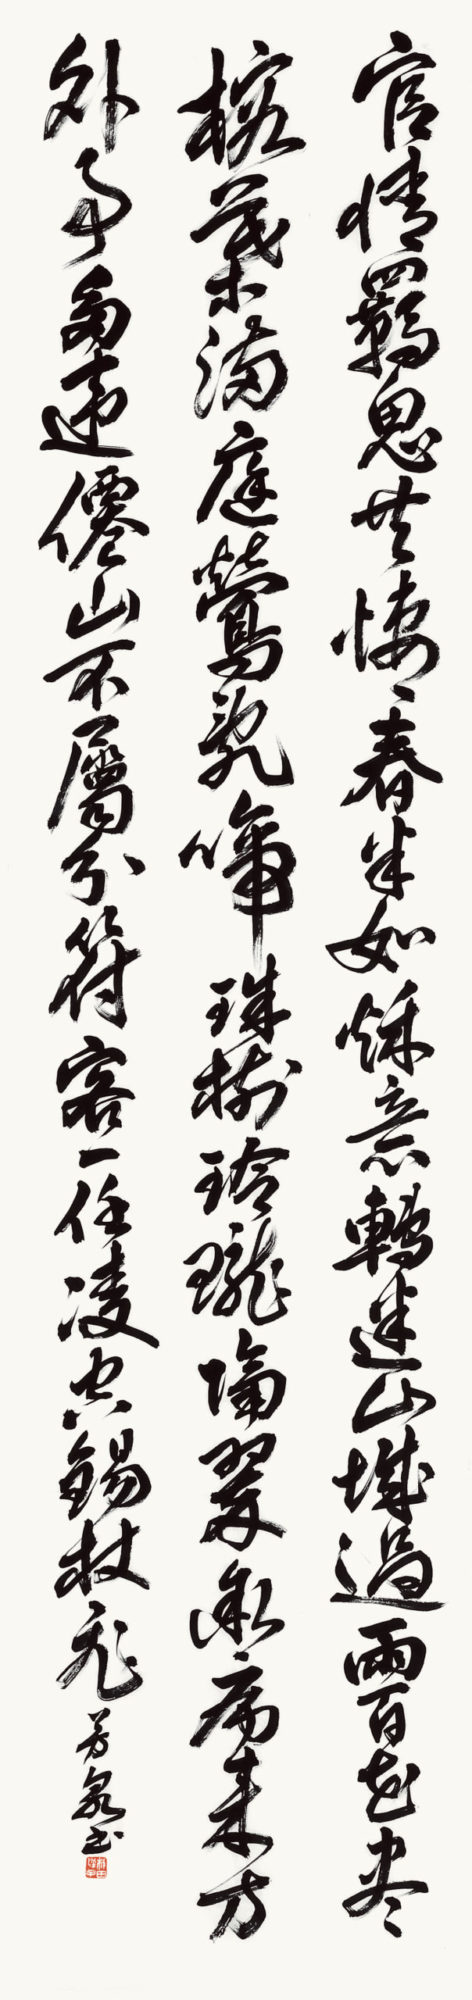 官情羈思共悽悽春半如秋意轉迷山城過雨百花盡
榕葉滿庭鶯亂啼珠樹玲瓏隔翠微病來方
外事多違僊山不屬分符客一任凌空錫杖飛芳泉書